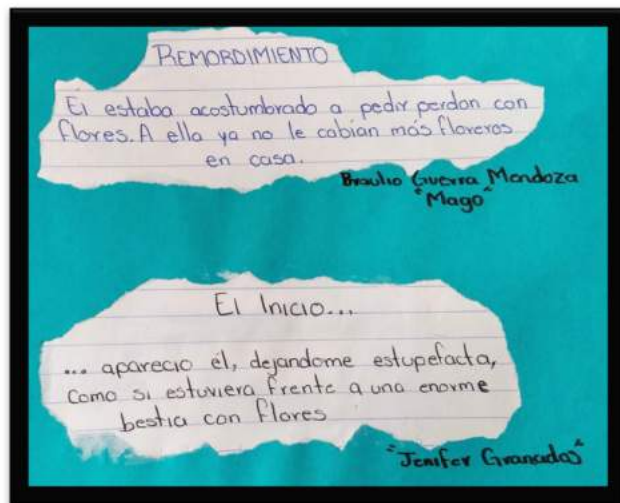 REMORDIMIENTO
El estaba acostumbrado a pedir perdon con
flores. A ella ya no le cabian más floreros
en casa.
Braulio Guerra Mendoza
"Mago"
El Inicio...
... aparecio él, dejandome estupefacta,
como si estuviera frente a una enorme
bestia con flores
"Jenifer Granados"